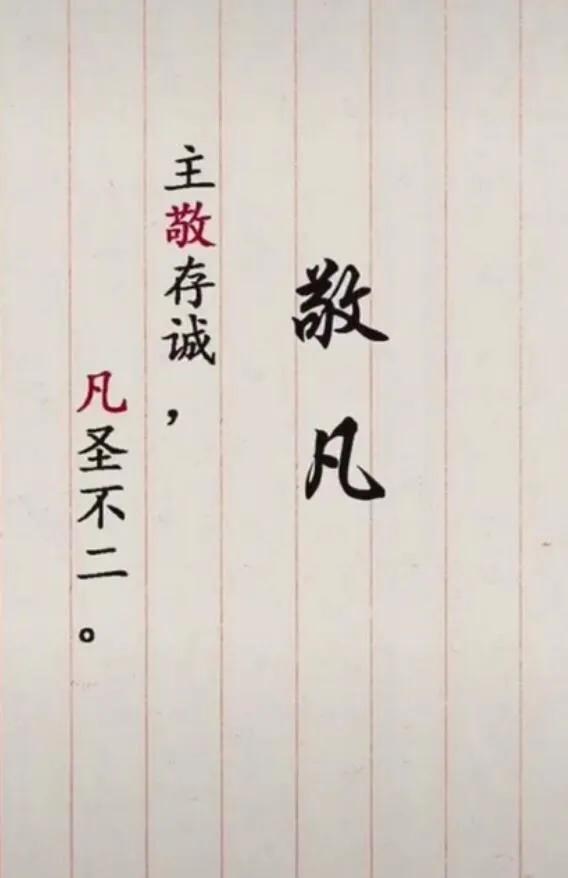 敬凡
主敬存诚，
凡圣不二。